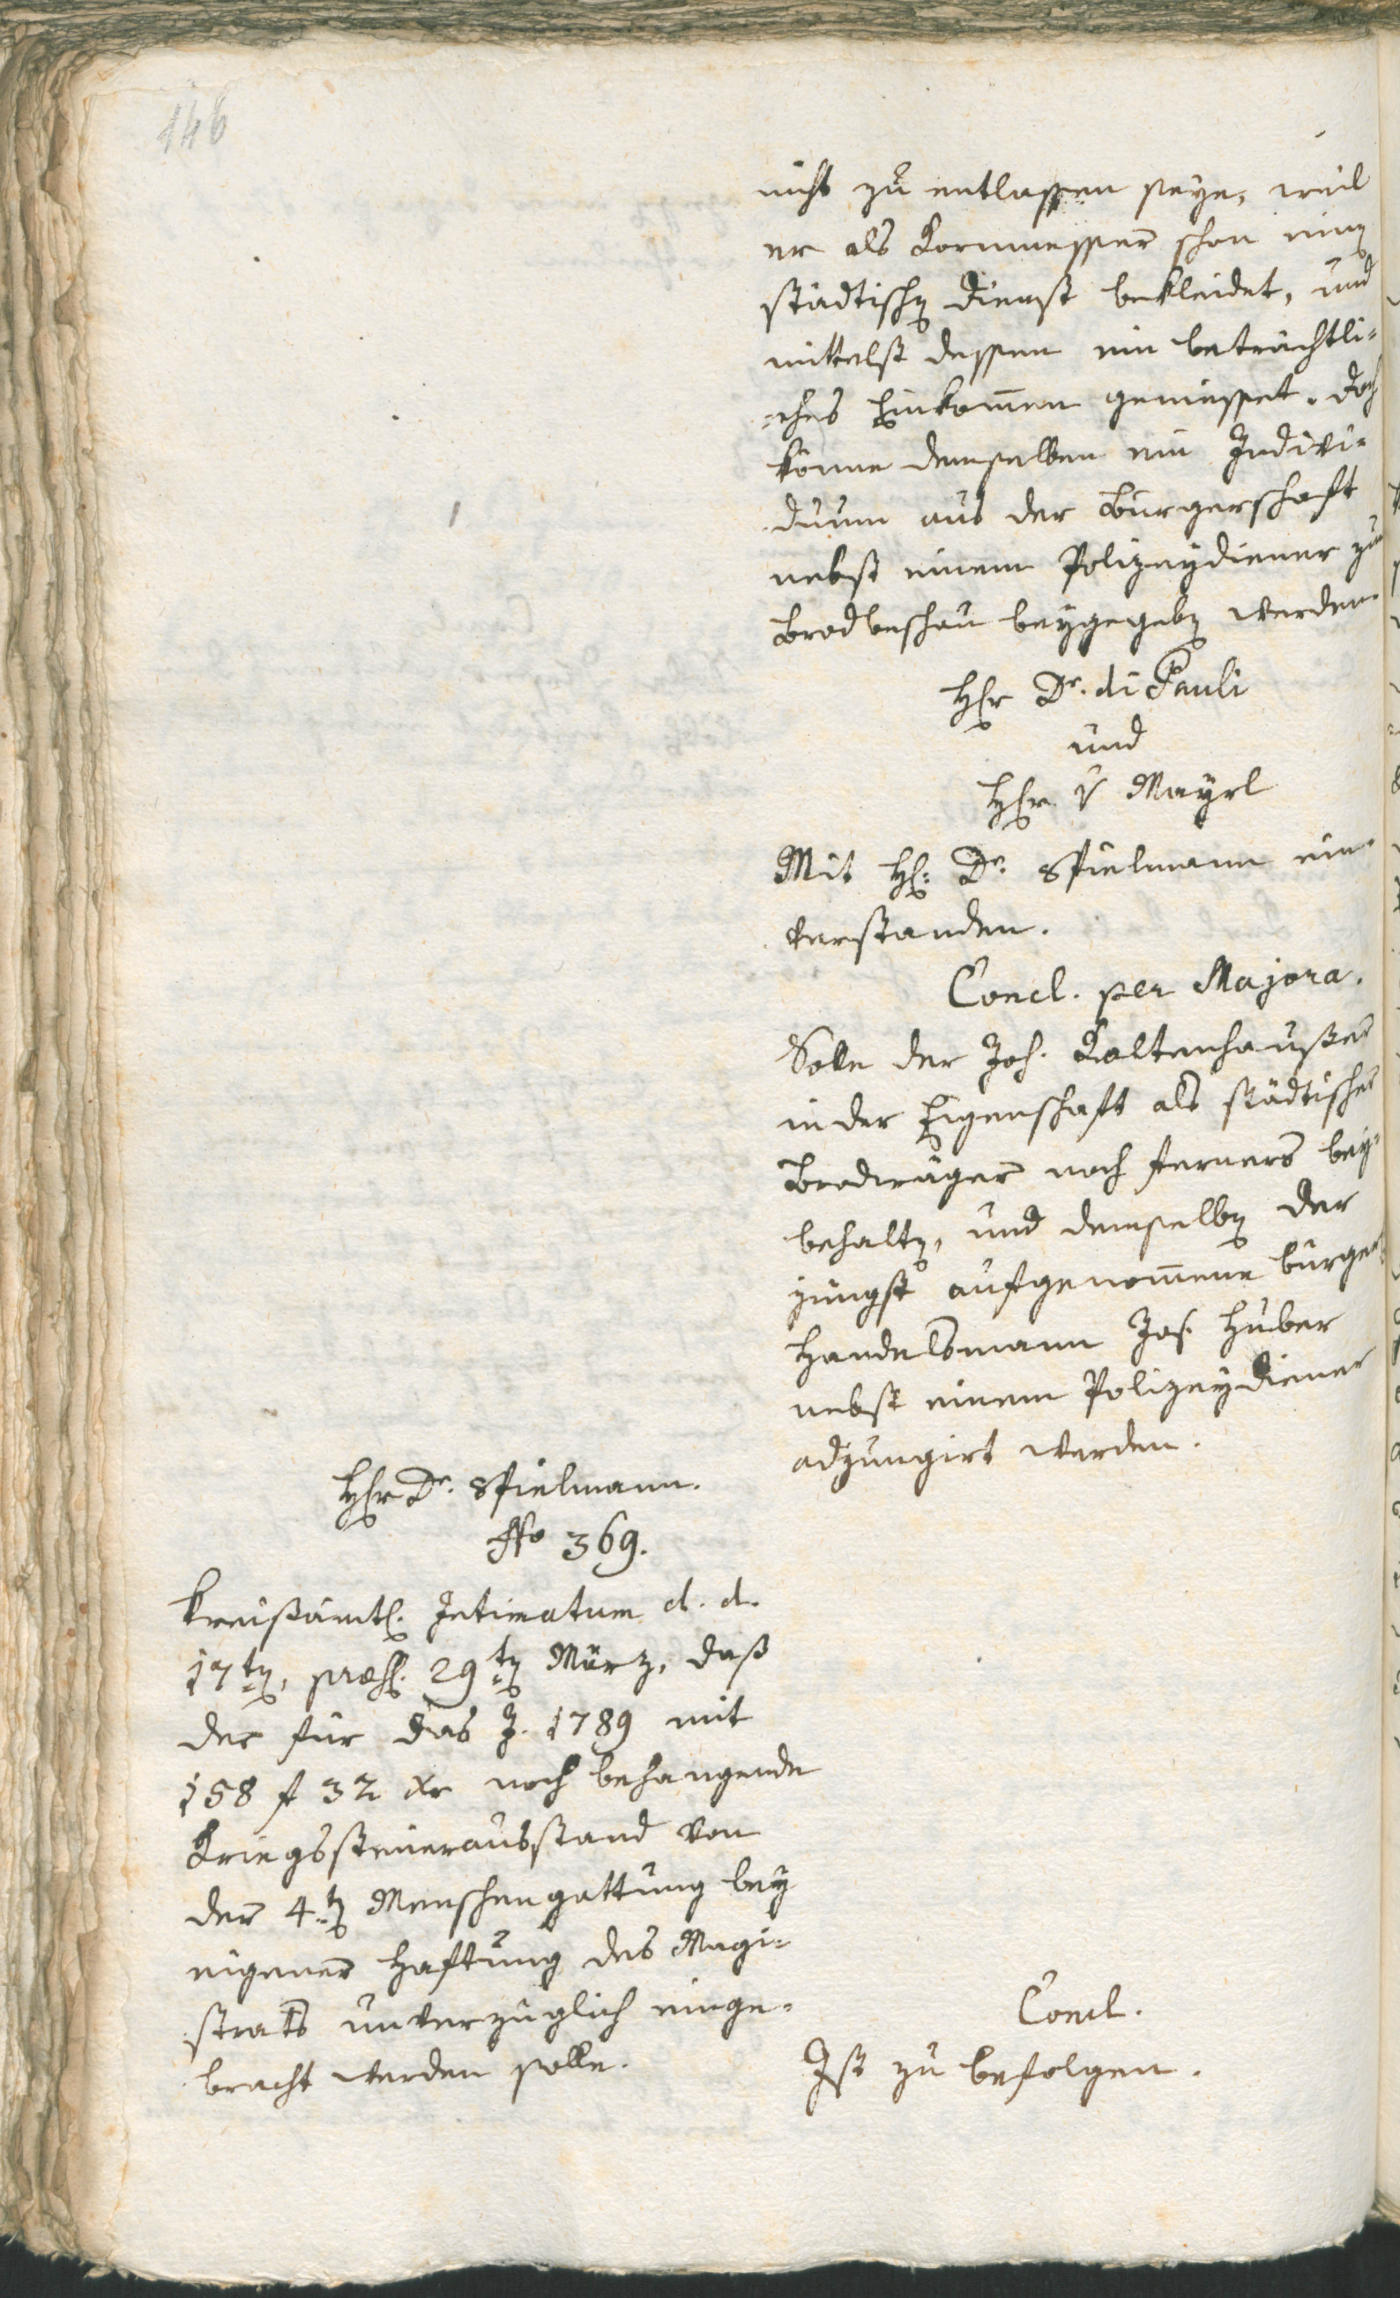 146
nicht zu entlassen seye, weil
er als Kornmesser schon einen
städtischen Dienst bekleidet, und
mittelst dessen ein beträchtli-
ches Einkom̅en geniesset. Doch
könne demselben ein Indivi-
duum aus der Burgerschaft
nebst einem Polizeydiener zur
Brodbeschau beygegeben werden.
Hr Dr. di Pauli
und
Hr v Mayrl
Mit H: Dr. Spielmann ein-
verstanden.
Concl. per Majora.
Solle der Joh. Kaltenhauser
in der Eigenschaft als städtischer
Brodwäger noch ferners bey-
behalten, und demselben der
jüngst aufgenom̅ene burgerl
Handelsmann Jos. Huber
nebst einem Polizeydiener
adjungirt werden.
Hr Dr. Spielmann.
No 369.
Kreisämtl. Intimatum d. d.
17ten, præs. 29ten März, daß
der für das J. 1789 mit
158 f 32 xr noch behangende
Kriegssteuerausstand von
der 4ten Menschengattung bey
eigener Haftung des Magi-
strats unverzüglich einge-
bracht werden solle.
Concl.
Ist zu befolgen.